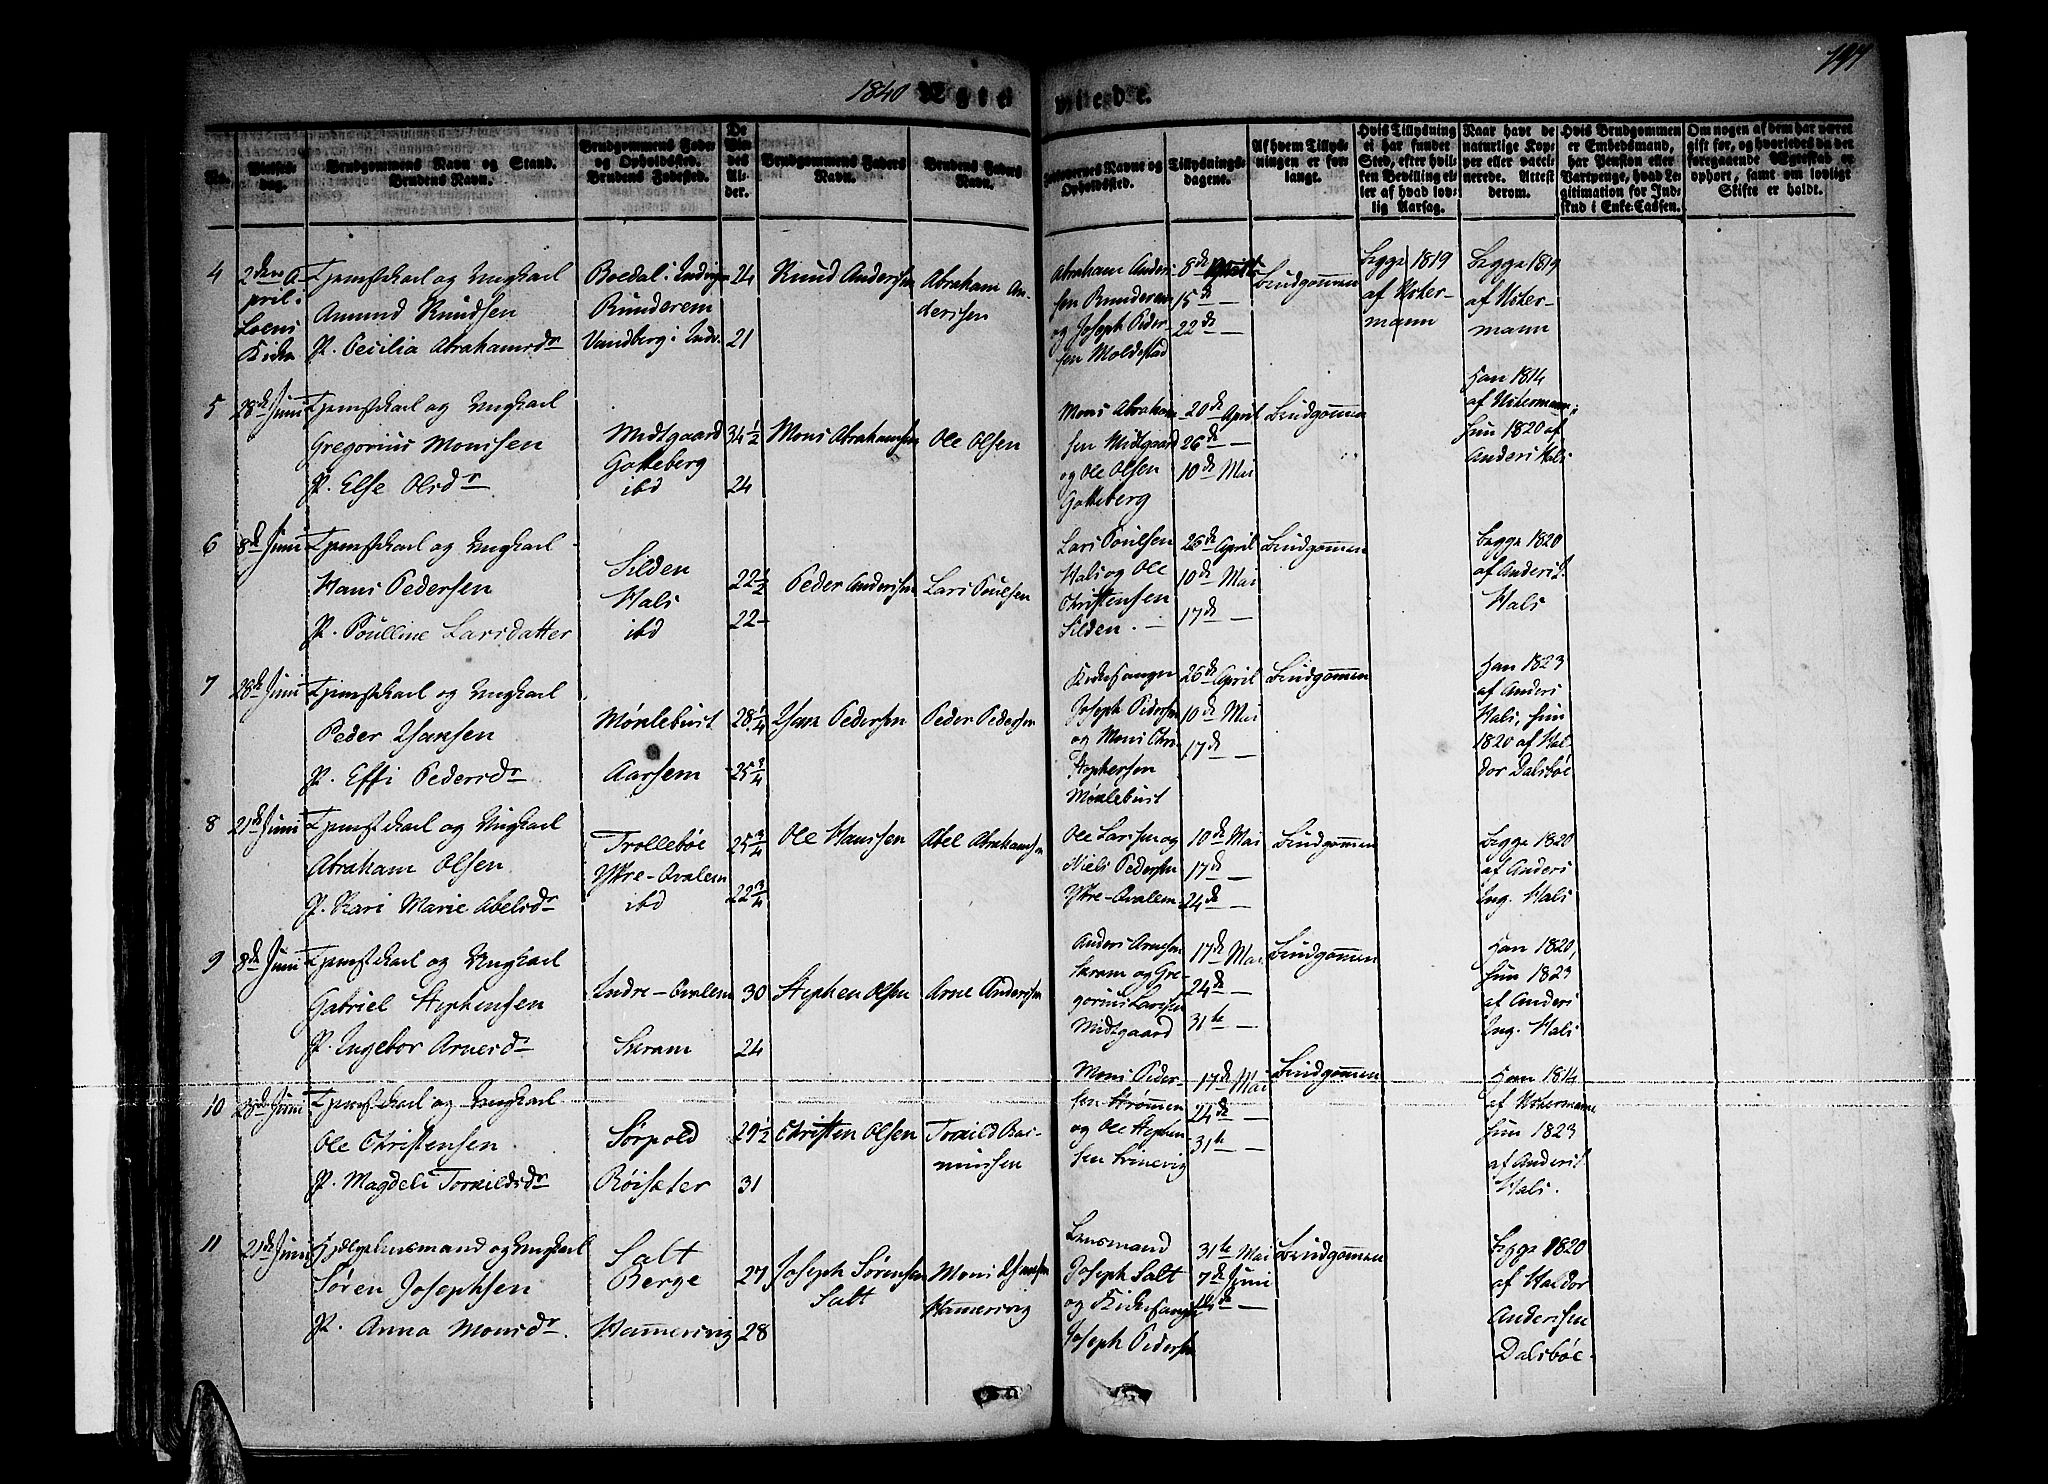 1840 Egte
viede.
197
No.
Vielses-
dag.
Brudgommens Navn og Stand.
Brudens Navn.
Brudgommens Føde-
og Opholdssted.
Brudens Fødested.
De
Vie-
des
Al-
der.
Brudgommens Faders
Navn.
Brudens Faders
Navn.
Forlovernes Navne og
Opholdssted.
Tillysnings-
dagene.
Af hvem Tillys-
ningen er for-
langt.
Hvis Tillysning
ei har fundet
Sted, efter hvil-
ken Bevilling el-
ler af hvad lov-
lig Aarsag.
Naar havt de
naturlige Kop-
per eller vacci-
nerede. Attest
derom.
Hvis Brudgommen
er Embedsmand,
har Pension eller
Vartpenge, hvad Le-
gitimation for Ind-
skud i Enke-Cassen.
Om nogen af dem har været
gift før, og hvorledes da det
foregaaende Ægteskab er
ophørt, samt om lovligt
Skifte er holdt.
4 2den A-
pril i
Kirke
Tjenstekarl og Ungkarl
Amund Knudsen
P. Cecilia Abrahamsdr
Runderem
24
21
Knud Andersen
Abraham An-
dersen
Abraham Ander-
sen Runderem
og Joseph Peder-
sen Moldestad
8de
15de —
22de —
Brudgommen
begge 1819
af Utter-
mann
begge 1819
af Utter-
mann
5 28de Juni
Tjenstekarl og Ungkarl
Gregorius Monssen
P. Else Olsdr
Midtgaard
Gotteberg
ibd
34 1/2
24
Mons Abrahamsen
Ole Olsen
Mons Abraham-
sen Midtgaard
og Ole Olsen
Gotteberg
20de April
26de —
10de Mai
Brudgommen
han 1814
af Uttermann,
hun 1820 af
Anders Hals
6 8de Juni
Tjenstekarl og Ungkarl
Hans Pedersen
P. Poulline Larsdatter
Silden
Hals
ibd
22 1/2
22
Peder Andersen
Lars Poulsen
Lars Poulsen
Hals og Ole
Christensen
Silden. —
26de April
10de Mai
17de —
Brudgommen
begge 1820
af Anders
Hals
7 28de Juni
Tjenstekarl og Ungkarl
Peder Hansen
P. Effi Pedersdr
Mørlebust
Aarsem
28 1/4
25 3/4
Hans Pedersen
Peder Pedersen
Kirkesanger
Joseph Pedersen
og Mons Chri-
stophersen
Mørlebust
26de April
10de Mai
17de —
Brudgommen
han 1823
af Anders
Hals, hun
1820 af Hal-
dor Dalsbøe
8 21de Juni
Tjenstekarl og Ungkarl
Abraham Olsen
P. Kari Marie Abelsdr
Trollebøe
Yttre-Qvalem
ibd
25 3/4
22 3/4
Ole Hanssen
Abel Abrahamsen
Ole Larsen og
Niels Pedersen
Yttre-Qvalem
10de Mai
17de —
24de —
Brudgommen
begge 1820
af Anders
Ing. Hals
9 8de Juni
Tjenstekarl og Ungkarl
Gabriel Stephensen
P. Ingebor Arnesdr
Indre-Qvalem
Skram
30
24
Stephen Olsen
Arne Andersen
Anders Arnesen
Skram og Gre-
gorius Larssen
Midtgaard
17de Mai
24de —
31te —
Brudgommen
han 1820,
hun 1823
af Anders
Ing. Hals
10 28de Juni
Tjenstekarl og Ungkarl
Ole Christensen
P. Magdeli Torkildsdr
Sørpold
Røisæter
29 1/2
31
Christen Olsen
Torkild Ras-
mussen
Mons Peder-
sen Strømmen
og Ole Stephen-
sen
17de Mai
24de —
31te —
Brudgommen
han 1814
af Uttermann
hun 1823
af Anders
Hals.
11 21de Juni
Hjelpelensmand og Ungkarl
Søren Josephsen
P. Anna Monsdr.
Salt
Berge
Hammersvig
27
28
Joseph Sørensen
Salt
Mons
Hammersvig
Lensmand
Joseph Salt
og Kirkesanger
Joseph Pedersen
31te Mai
7de Juni
14de —
Brudgommen
begge 1820
af Haldor
Anderssen
Dalsbøe.